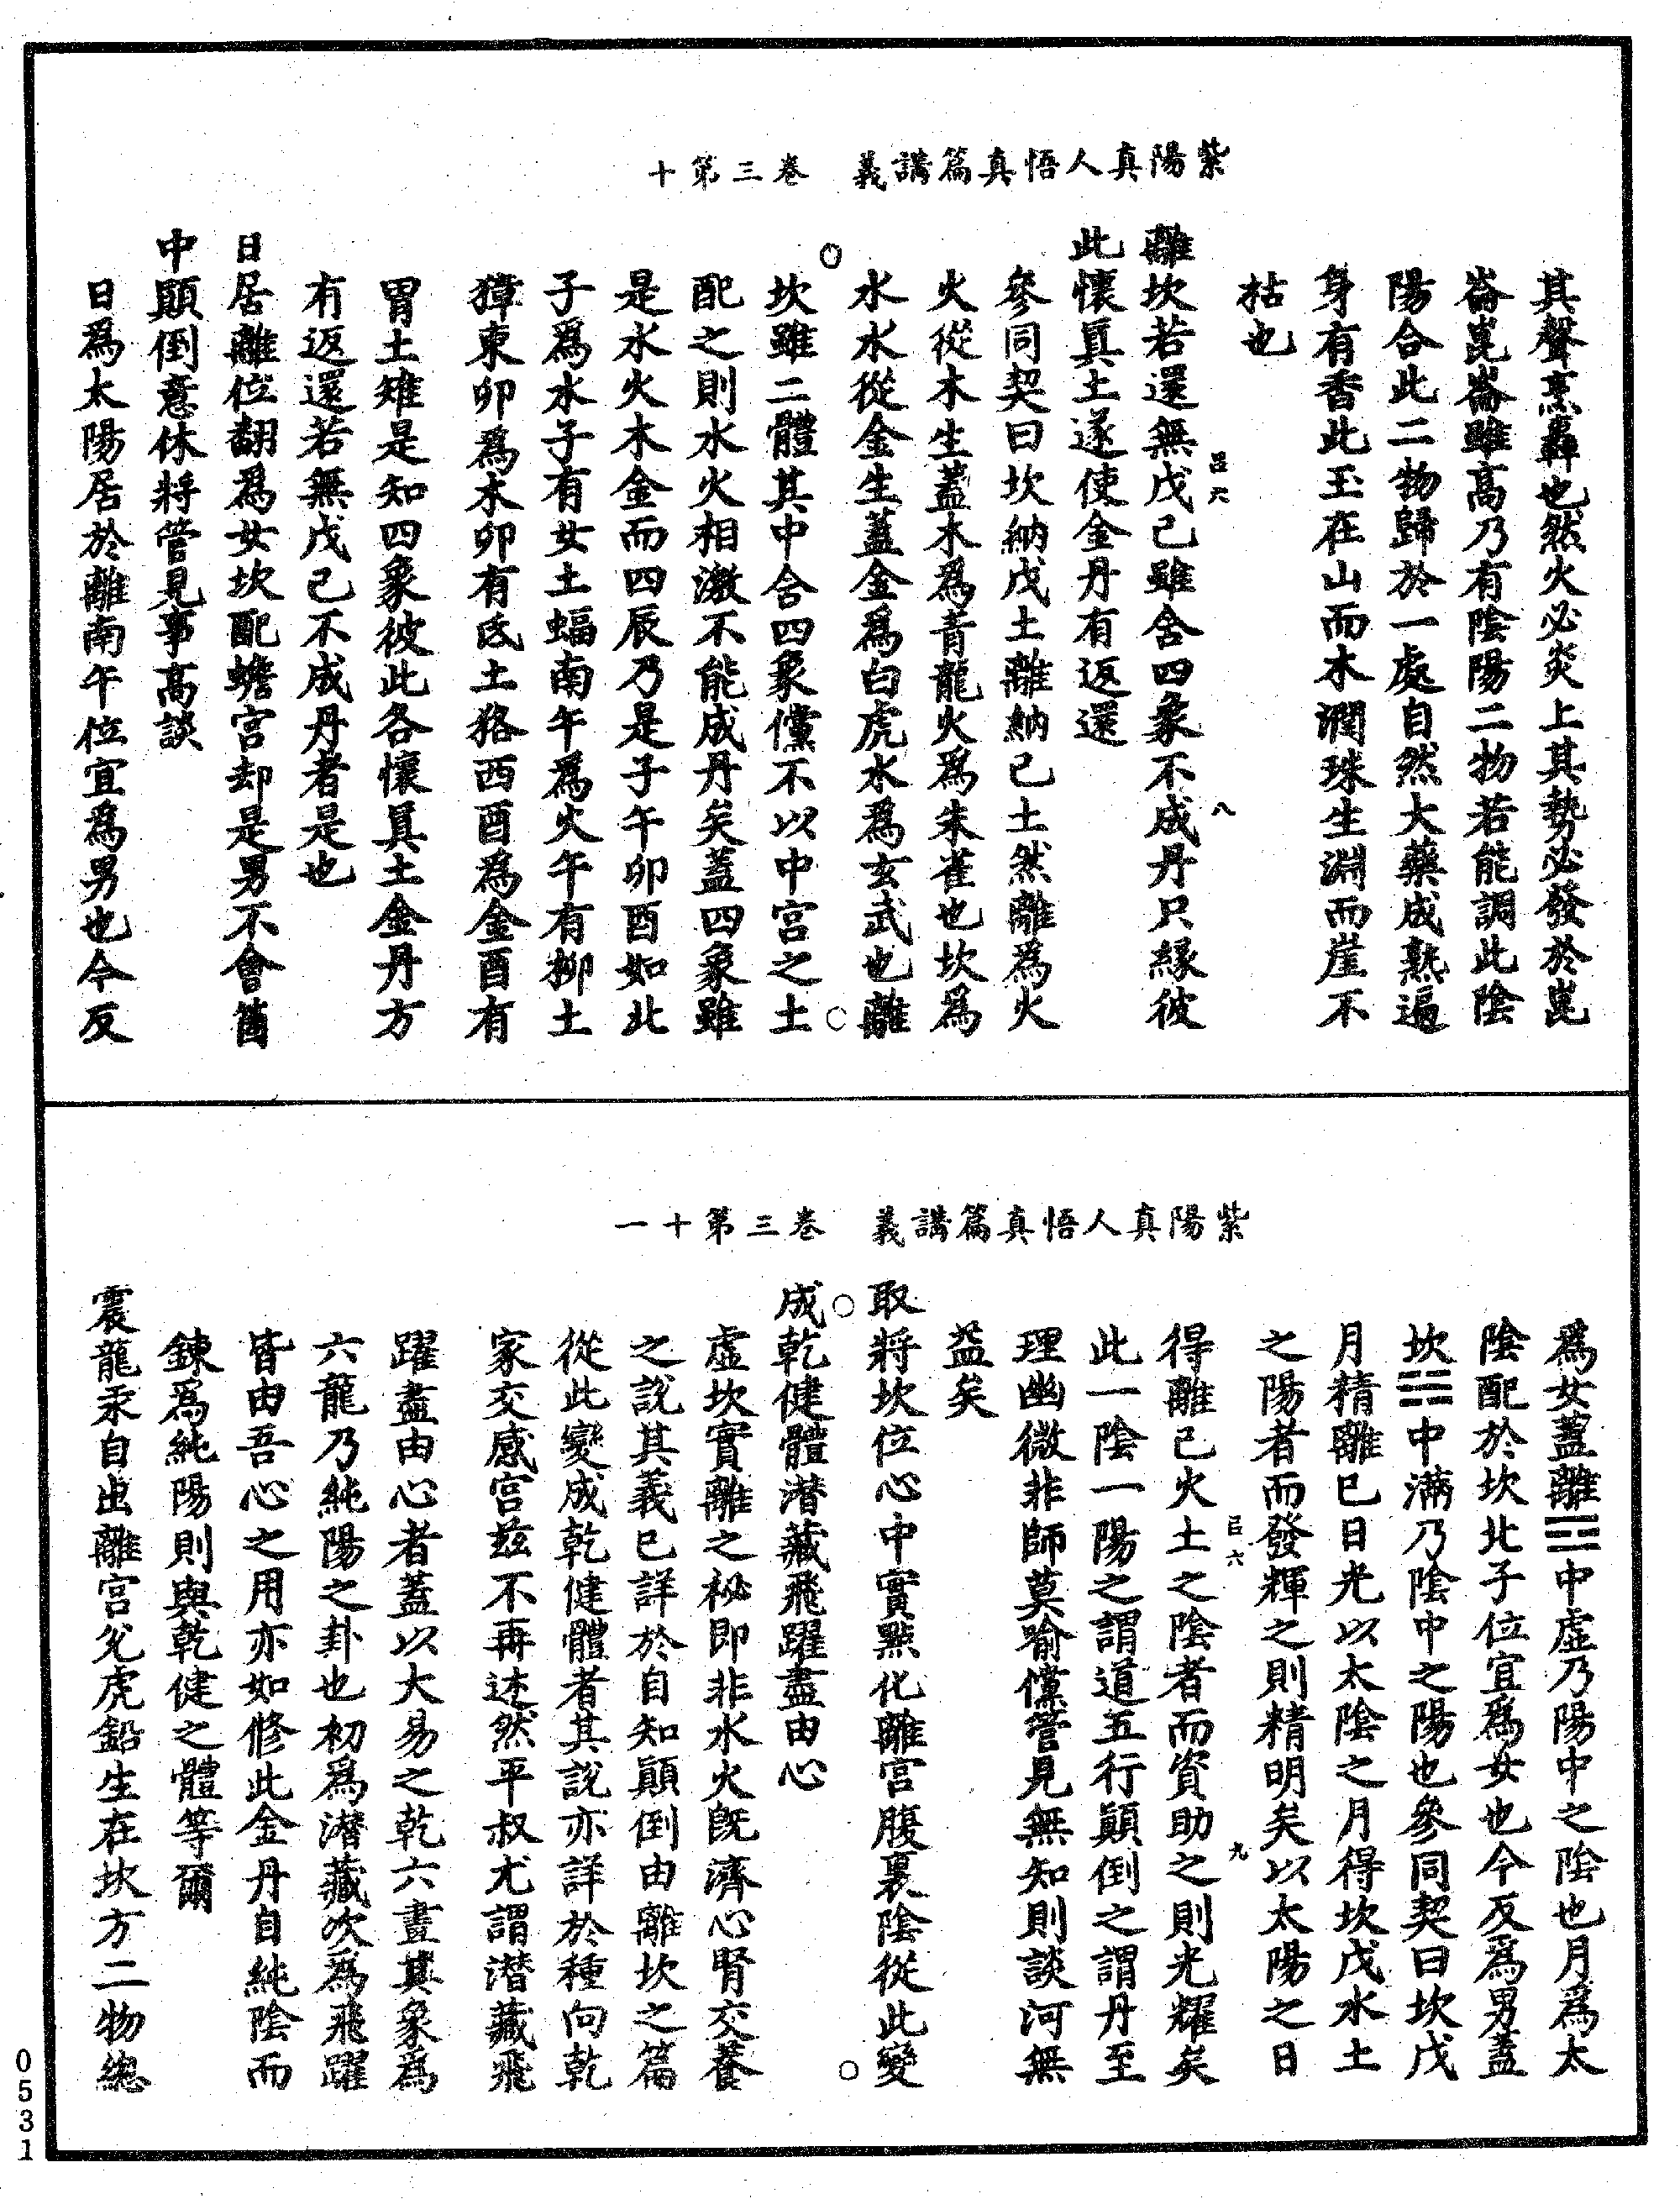 紫陽真人悟真篇講義　卷三第十
其聲烹轟也然火必炎上其勢必發於崑
崙崑崙雖高乃有陰陽二物若能調此陰
陽合此二物歸於一處自然大藥成熟遍
身有香此玉在山而木潤珠生淵而崖不
枯也
呂六　八
離坎若還無戊己雖含四象不成丹只緣彼
此懷真土遂使金丹有返還
參同契曰坎納戊土離納己土然離為火
火從木生蓋木為青龍火為朱雀也坎為
水水從金生蓋金為白虎水為玄武也離
坎雖二體其中含四象儻不以中宮之土
配之則水火相激不能成丹矣蓋四象雖
是水火木金而四辰乃是子午卯酉如此
子為水子有女土蝠南午為火午有柳土
獐東卯為木卯有氐土狢西酉為金酉有
胃土雉是知四象彼此各懷真土金丹方
有返還若無戊己不成丹者是也
日居離位翻為女坎配蟾宮却是男不會箇
中顛倒意休將管見事高談
日為太陽居於離南午位宜為男也今反
紫陽真人悟真篇講義　卷三第十一
為女蓋離☲中虛乃陽中之陰也月為太
陰配於坎北子位宜為女也今反為男蓋
坎☵中滿乃陰中之陽也參同契曰坎戊
月精離巳日光以太陰之月得坎戊水土
之陽者而發輝之則精明矣以太陽之日
呂六　九
得離己火土之陰者而資助之則光耀矣
此一陰一陽之謂道五行顛倒之謂丹至
理幽微非師莫喻儻管見無知則談河無
益矣
取將坎位心中實點化離宮腹裏陰從此變
成乾健體潛藏飛躍盡由心
虛坎實離之祕即非水火既濟心腎交養
之說其義已詳於自知顛倒由離坎之篇
從此變成乾健體者其說亦詳於種向乾
家交感宮茲不再述然平叔尤謂潛藏飛
躍盡由心者蓋以大易之乾六畫其象為
六龍乃純陽之卦也初為潛藏次為飛躍
皆由吾心之用亦如修此金丹自純陰而
鍊為純陽則與乾健之體等爾
震龍汞自出離宮兊虎鉛生在坎方二物總
0531